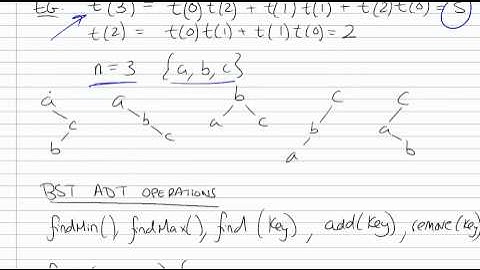 EG. t(3) = t(0)t(2) + t(1)t(1) + t(2)t(0) = 5
t(2) = t(0)t(1) + t(1)t(0) = 2
n = 3 {a, b, c}
a a b c c
c b a c b a
b c a b
BST ADT OPERATIONS
findMin(), findMax(), find (key), add(key), remove(key)